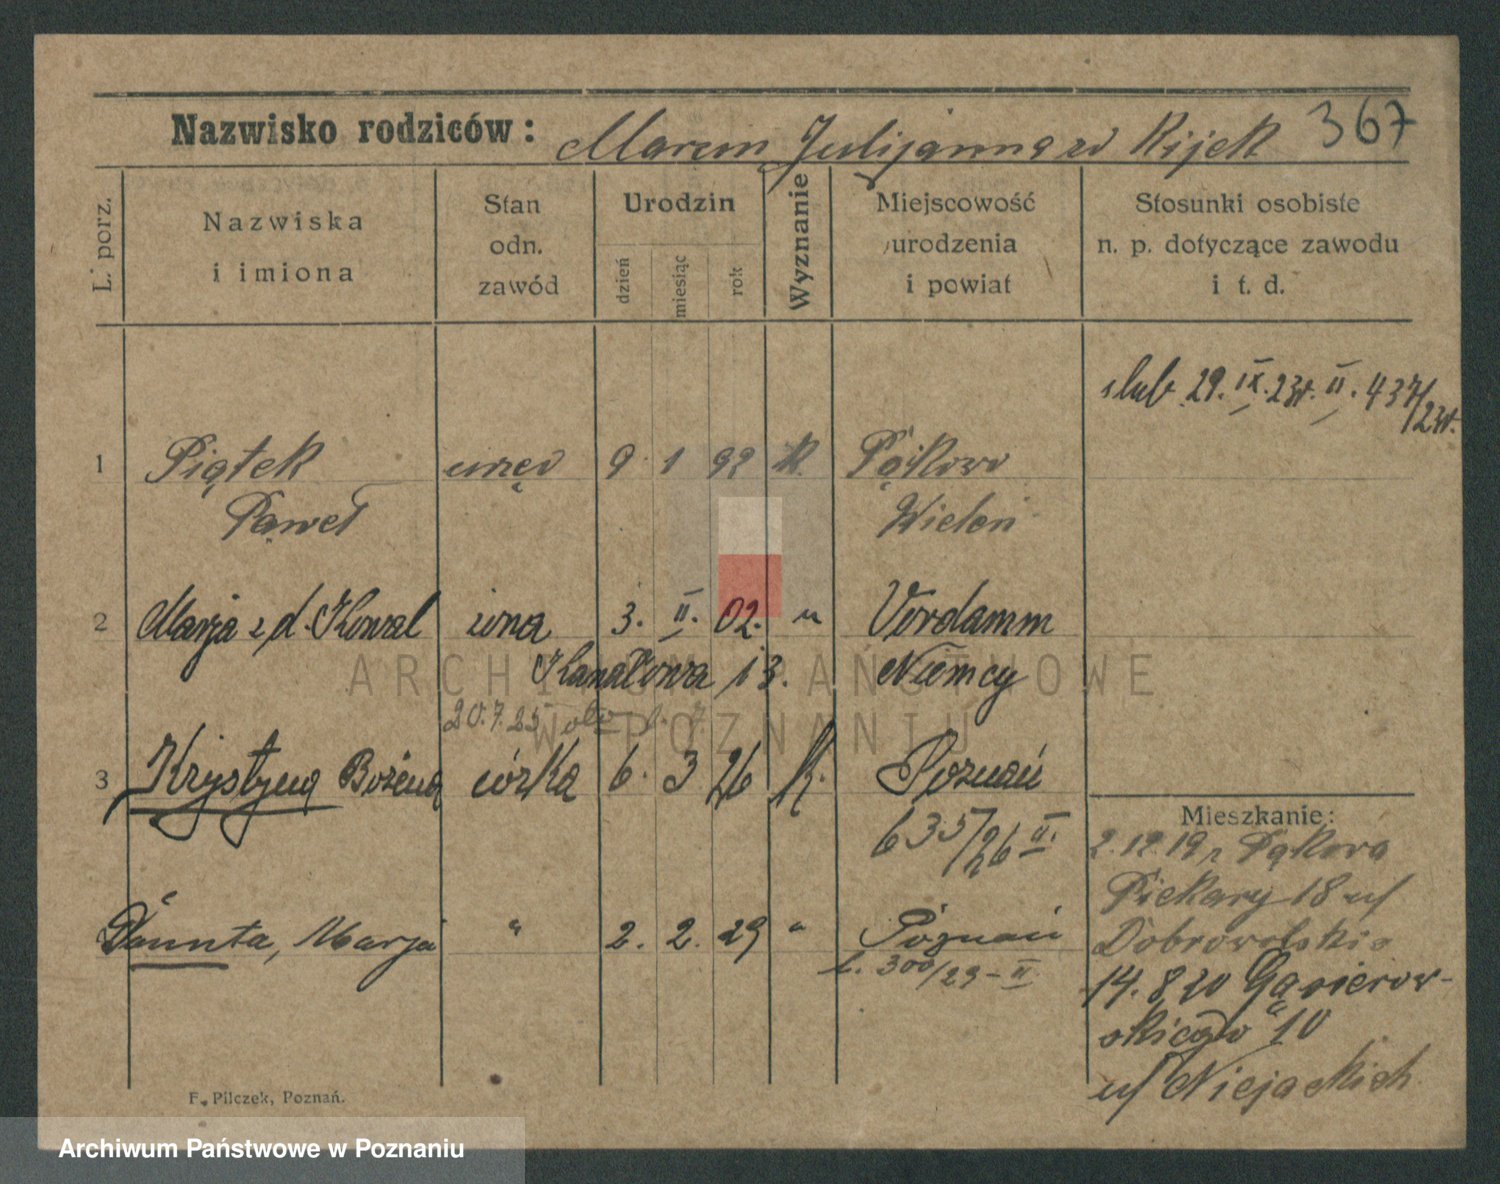 Nazwisko rodziców: Marcin Julijanna zd Kijek 367
L. porz.
Nazwiska
i imiona
Stan
odn.
zawód
Urodzin
dzień
miesiąc
rok
Wyznanie
Miejscowość
urodzenia
i powiat
Stosunki osobiste
n. p. dotyczące zawodu
i t. d.
ślub 29. IX. 23r. II. 437/23r.
1 Piątek urzęd 9 1 92 k. Pękowo
Paweł Wieleń
2 Marja z d. Kowal żona 3. II. 02. " Vordamm
Kanałowa 13. Niemcy
20.7.25
3 Krystyna Bożena córka 6. 3 26 k. Poznań
635/26 II.
Mieszkanie:
2.12.19 r Pękowa
Piekary 18 u/
Danuta, Marja " 2. 2. 29 " Poznań
Dobrowolskie
l. 300/29-II
14.8.20 Gąsiorow-
skich 10
u/ Niejackich
F. Pilczek, Poznań.
ARCHIWUM PAŃSTWOWE
W POZNANIU
Archiwum Państwowe w Poznaniu